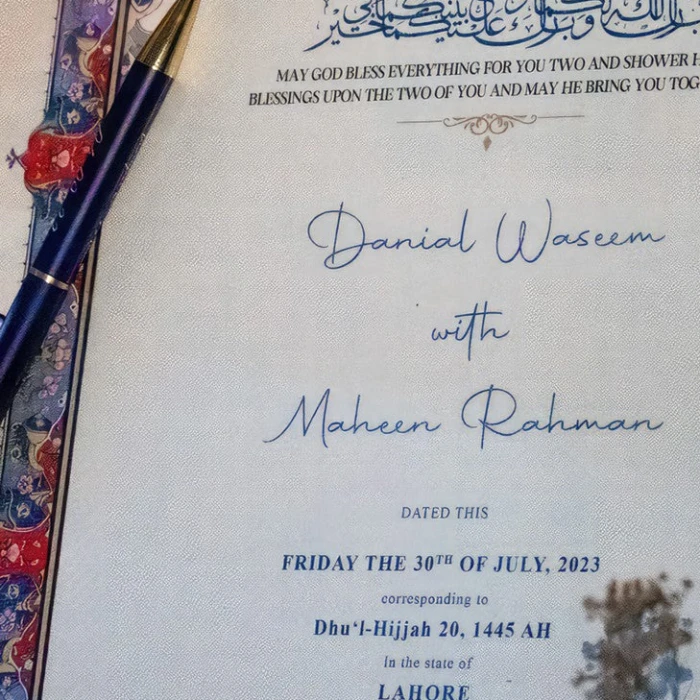 بارك الله لكما وبارك عليكما بينكما في خير
MAY GOD BLESS EVERYTHING FOR YOU TWO AND SHOWER H
BLESSINGS UPON THE TWO OF YOU AND MAY HE BRING YOU TOG
Danial Waseem
with
Maheen Rahman
DATED THIS
FRIDAY THE 30TH OF JULY, 2023
corresponding to
Dhu‘l-Hijjah 20, 1445 AH
In the state of
LAHORE